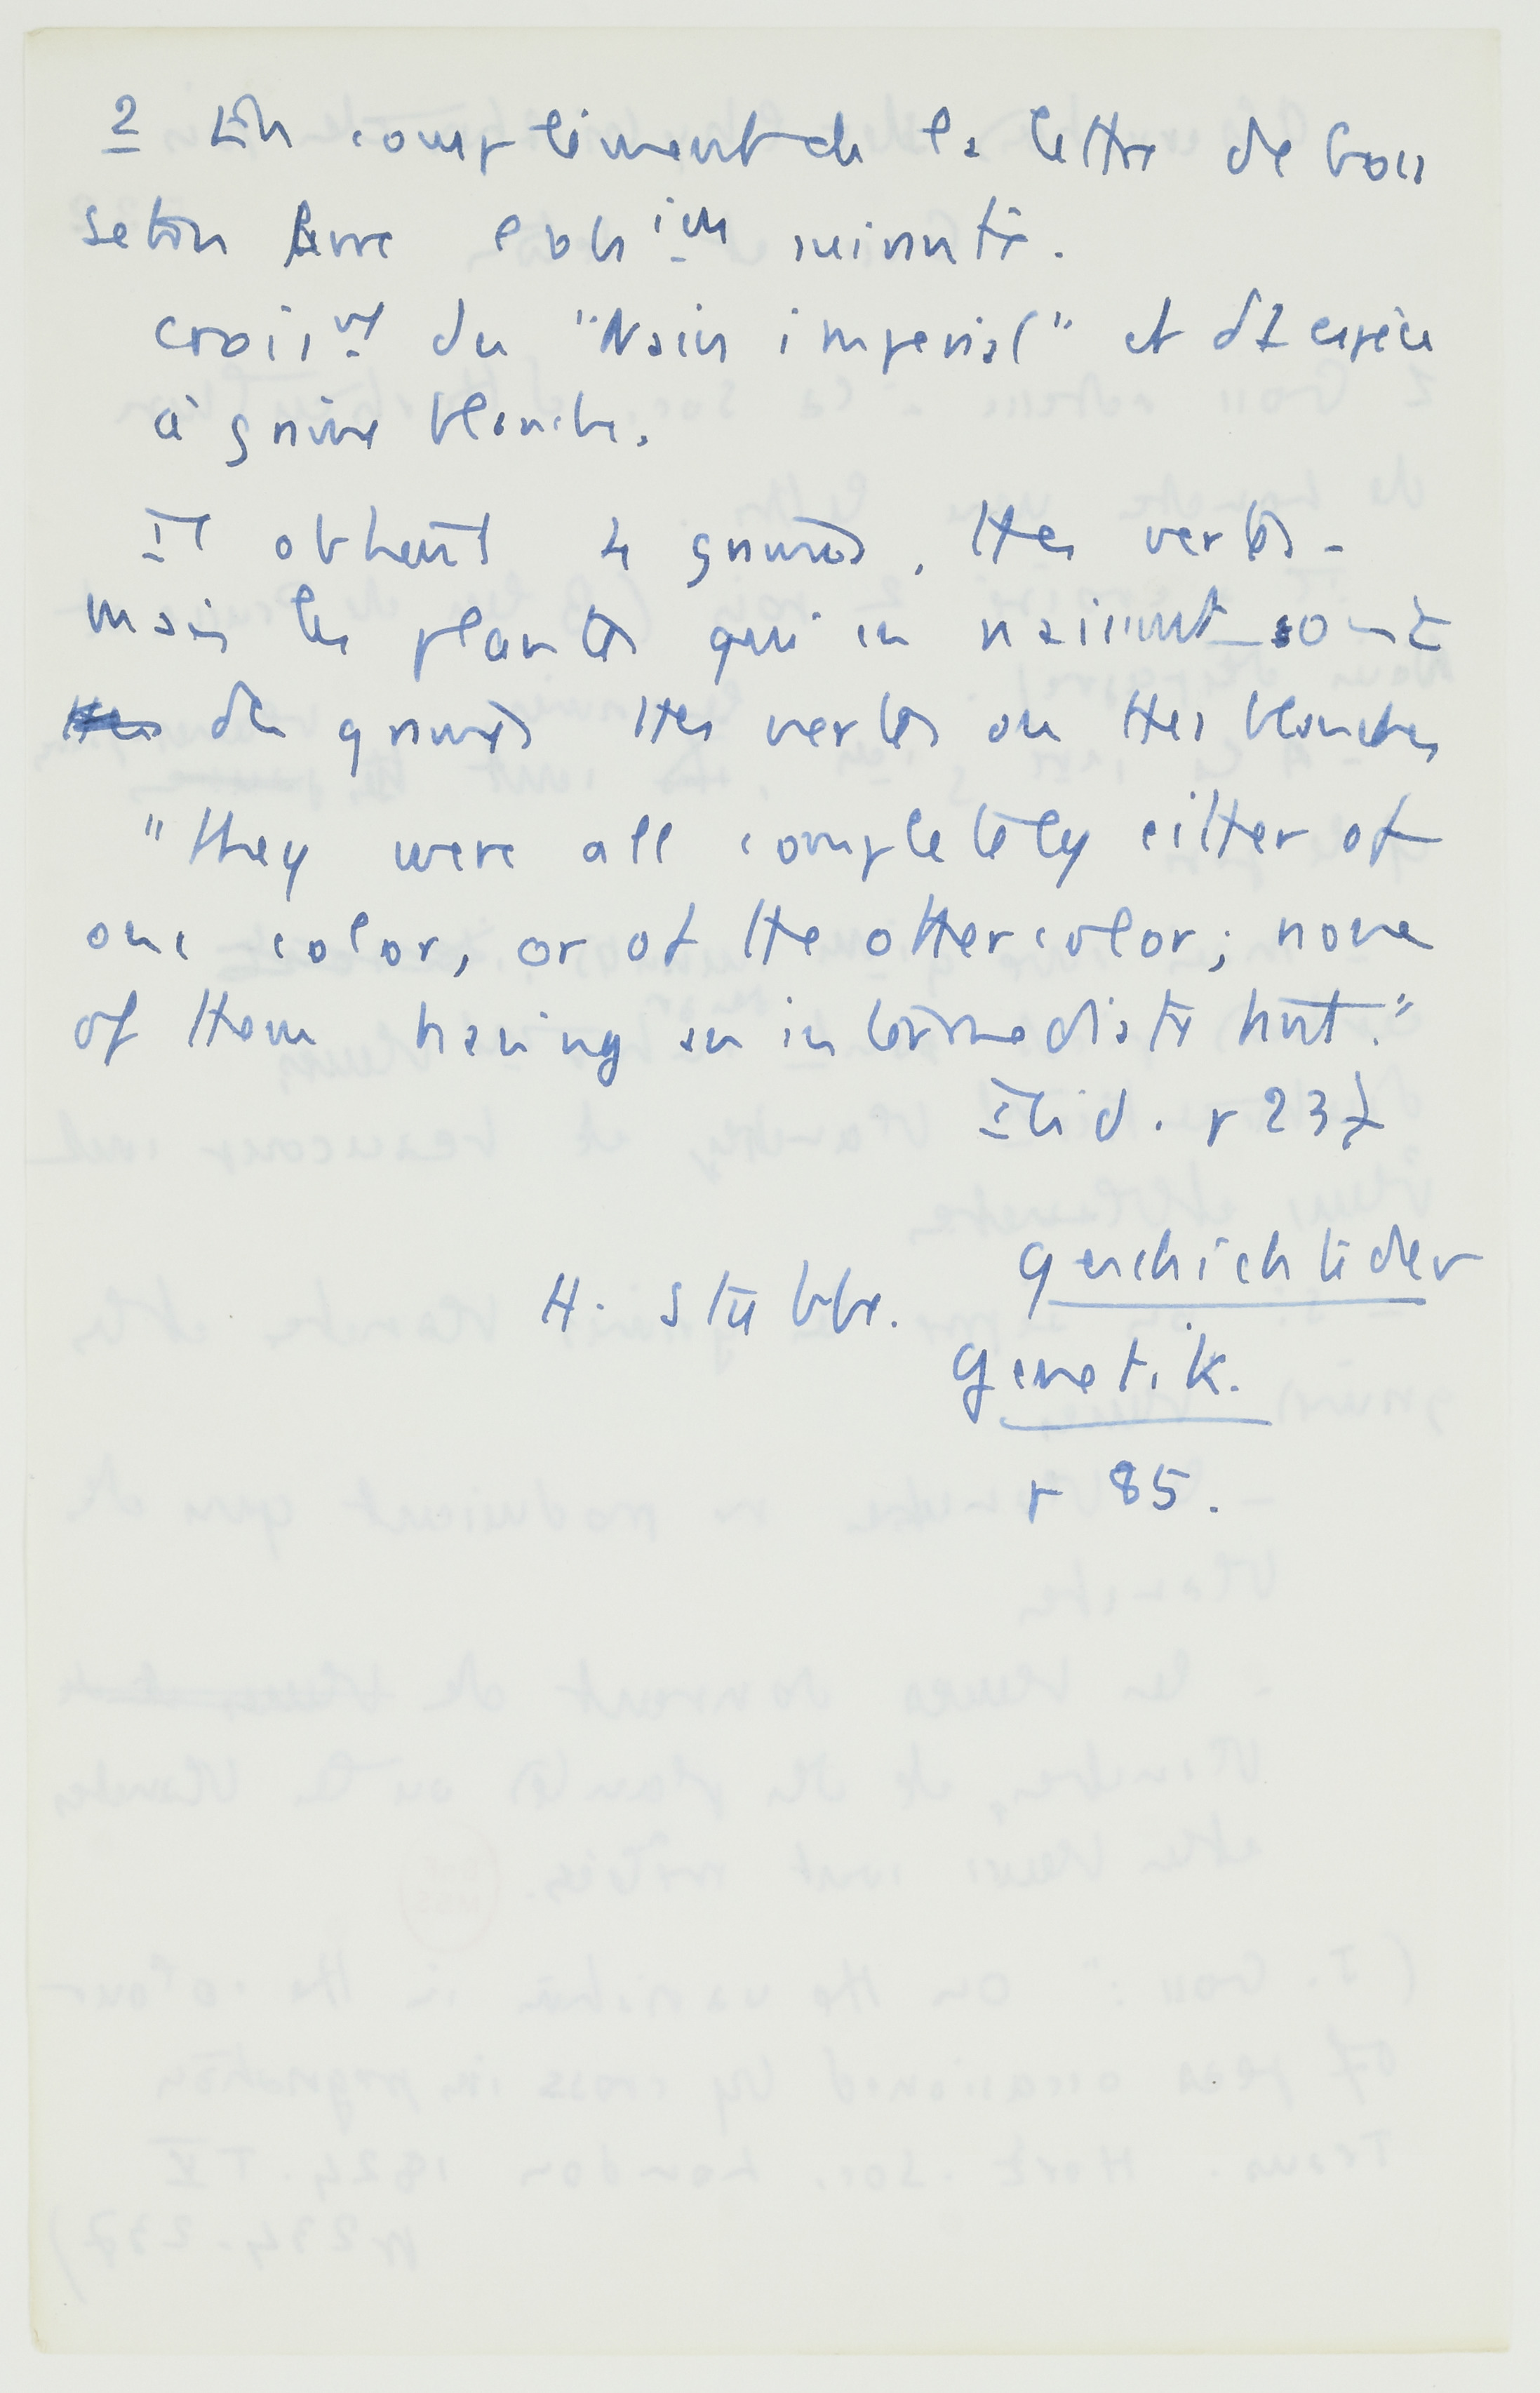 2 En complément de la lettre de Goss
Seton livre l'obs^ion suivante.
crois^nt du "Nain imperial" et d'1 espèce
à graine blanche.
Il obtient 4 graines, ttes vertes -
mais les plantes qui en naissent sont
de graines ttes vertes ou ttes blanches
"they were all completely either of
one color, or of the other color; none
of them having an intermediate tint."
Ibid. p 237
H. Stubbe. Geschichte der
Genetik.
p 85.